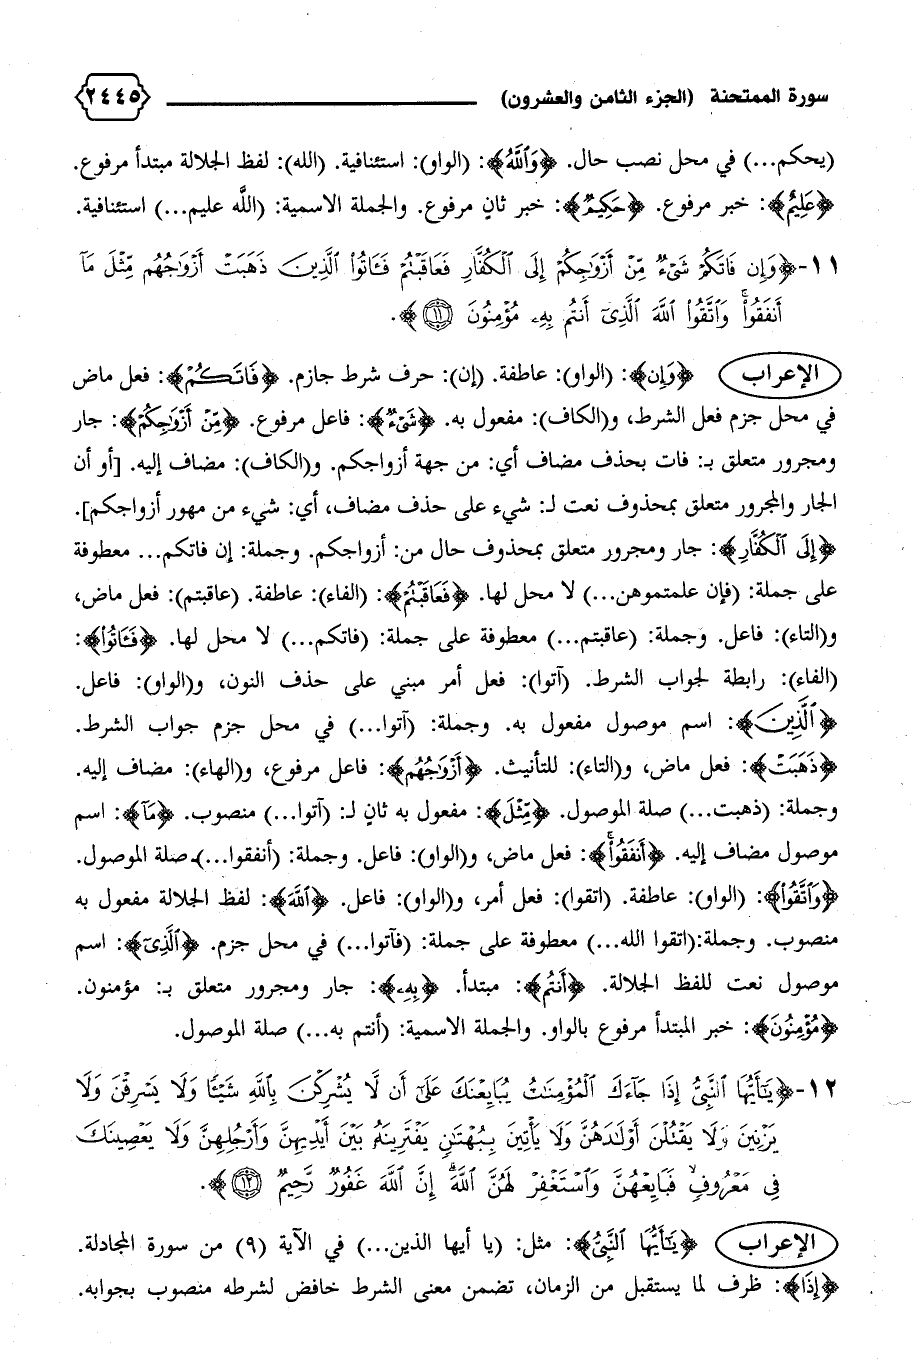 سورة الممتحنة (الجزء الثامن والعشرون) ٢٤٤٥
(يحكم...) في محل نصب حال. ﴿وَٱللَّهُ﴾: (الواو): استئنافية. (الله): لفظ الجلالة مبتدأ مرفوع.
﴿عَلِيمٌ﴾: خبر مرفوع. ﴿حَكِيمٌ﴾: خبر ثانٍ مرفوع. والجملة الاسمية: (اللَّه عليم...) استئنافية.
١١-﴿وَإِن فَاتَكُمْ شَىْءٌ مِّنْ أَزْوَٰجِكُمْ إِلَى ٱلْكُفَّارِ فَعَاقَبْتُمْ فَـَٔاتُوا۟ ٱلَّذِينَ ذَهَبَتْ أَزْوَٰجُهُم مِّثْلَ مَآ
أَنفَقُوا۟ۚ وَٱتَّقُوا۟ ٱللَّهَ ٱلَّذِىٓ أَنتُم بِهِۦ مُؤْمِنُونَ ﴿١١﴾﴾.
الإعراب ﴿وَإِن﴾: (الواو): عاطفة. (إن): حرف شرط جازم. ﴿فَاتَكُمْ﴾: فعل ماض
في محل جزم فعل الشرط، و(الكاف): مفعول به. ﴿شَىْءٌ﴾: فاعل مرفوع. ﴿مِّنْ أَزْوَٰجِكُمْ﴾: جار
ومجرور متعلق بـ: فات بحذف مضاف أي: من جهة أزواجكم. و(الكاف): مضاف إليه. [أو أن
الجار والمجرور متعلق بمحذوف نعت لـ: شيء على حذف مضاف، أي: شيء من مهور أزواجكم].
﴿إِلَى ٱلْكُفَّارِ﴾: جار ومجرور متعلق بمحذوف حال من: أزواجكم. وجملة: إن فاتكم... معطوفة
على جملة: (فإن علمتموهن...) لا محل لها. ﴿فَعَاقَبْتُمْ﴾: (الفاء): عاطفة. (عاقبتم): فعل ماض،
و(التاء): فاعل. وجملة: (عاقبتم...) معطوفة على جملة: (فاتكم...) لا محل لها. ﴿فَـَٔاتُوا۟﴾:
(الفاء): رابطة لجواب الشرط. (آتوا): فعل أمر مبني على حذف النون، و(الواو): فاعل.
﴿ٱلَّذِينَ﴾: اسم موصول مفعول به. وجملة: (آتوا...) في محل جزم جواب الشرط.
﴿ذَهَبَتْ﴾: فعل ماض، و(التاء): للتأنيث. ﴿أَزْوَٰجُهُم﴾: فاعل مرفوع، و(الهاء): مضاف إليه.
وجملة: (ذهبت...) صلة الموصول. ﴿مِّثْلَ﴾: مفعول به ثانٍ لـ: (آتوا...) منصوب. ﴿مَآ﴾: اسم
موصول مضاف إليه. ﴿أَنفَقُوا۟ۚ﴾: فعل ماض، و(الواو): فاعل. وجملة: (أنفقوا...) صلة الموصول.
﴿وَٱتَّقُوا۟﴾: (الواو): عاطفة. (اتقوا): فعل أمر، و(الواو): فاعل. ﴿ٱللَّهَ﴾: لفظ الجلالة مفعول به
منصوب. وجملة:(اتقوا الله...) معطوفة على جملة: (فآتوا...) في محل جزم. ﴿ٱلَّذِىٓ﴾: اسم
موصول نعت للفظ الجلالة. ﴿أَنتُم﴾: مبتدأ. ﴿بِهِۦ﴾: جار ومجرور متعلق بـ: مؤمنون.
﴿مُؤْمِنُونَ﴾: خبر المبتدأ مرفوع بالواو. والجملة الاسمية: (أنتم به...) صلة الموصول.
١٢-﴿يَـٰٓأَيُّهَا ٱلنَّبِىُّ إِذَا جَآءَكَ ٱلْمُؤْمِنَـٰتُ يُبَايِعْنَكَ عَلَىٰٓ أَن لَّا يُشْرِكْنَ بِٱللَّهِ شَيْـًٔا وَلَا يَسْرِقْنَ وَلَا
يَزْنِينَ وَلَا يَقْتُلْنَ أَوْلَـٰدَهُنَّ وَلَا يَأْتِينَ بِبُهْتَـٰنٍ يَفْتَرِينَهُۥ بَيْنَ أَيْدِيهِنَّ وَأَرْجُلِهِنَّ وَلَا يَعْصِينَكَ
فِى مَعْرُوفٍۙ فَبَايِعْهُنَّ وَٱسْتَغْفِرْ لَهُنَّ ٱللَّهَۖ إِنَّ ٱللَّهَ غَفُورٌ رَّحِيمٌ ﴿١٢﴾﴾.
الإعراب ﴿يَـٰٓأَيُّهَا ٱلنَّبِىُّ﴾: مثل: (يا أيها الذين...) في الآية (٩) من سورة المجادلة.
﴿إِذَا﴾: ظرف لما يستقبل من الزمان، تضمن معنى الشرط خافض لشرطه منصوب بجوابه.